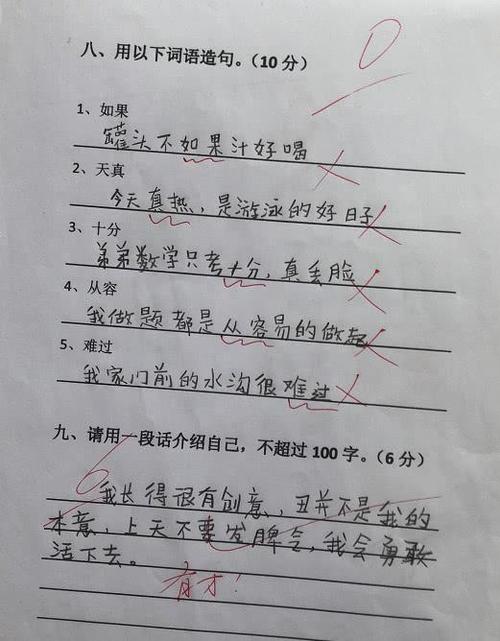 0
八、用以下词语造句。（10 分）
1、如果
罐头不如果汁好喝
2、天真
今天真热，是游泳的好日子
3、十分
弟弟数学只考十分，真丢脸
4、从容
我做题都是从容易的做起
5、难过
我家门前的水沟很难过
九、请用一段话介绍自己，不超过 100 字。（6 分）
6
我长得很有创意，丑并不是我的
本意，上天不要发脾气，我会勇敢
活下去。
有才！